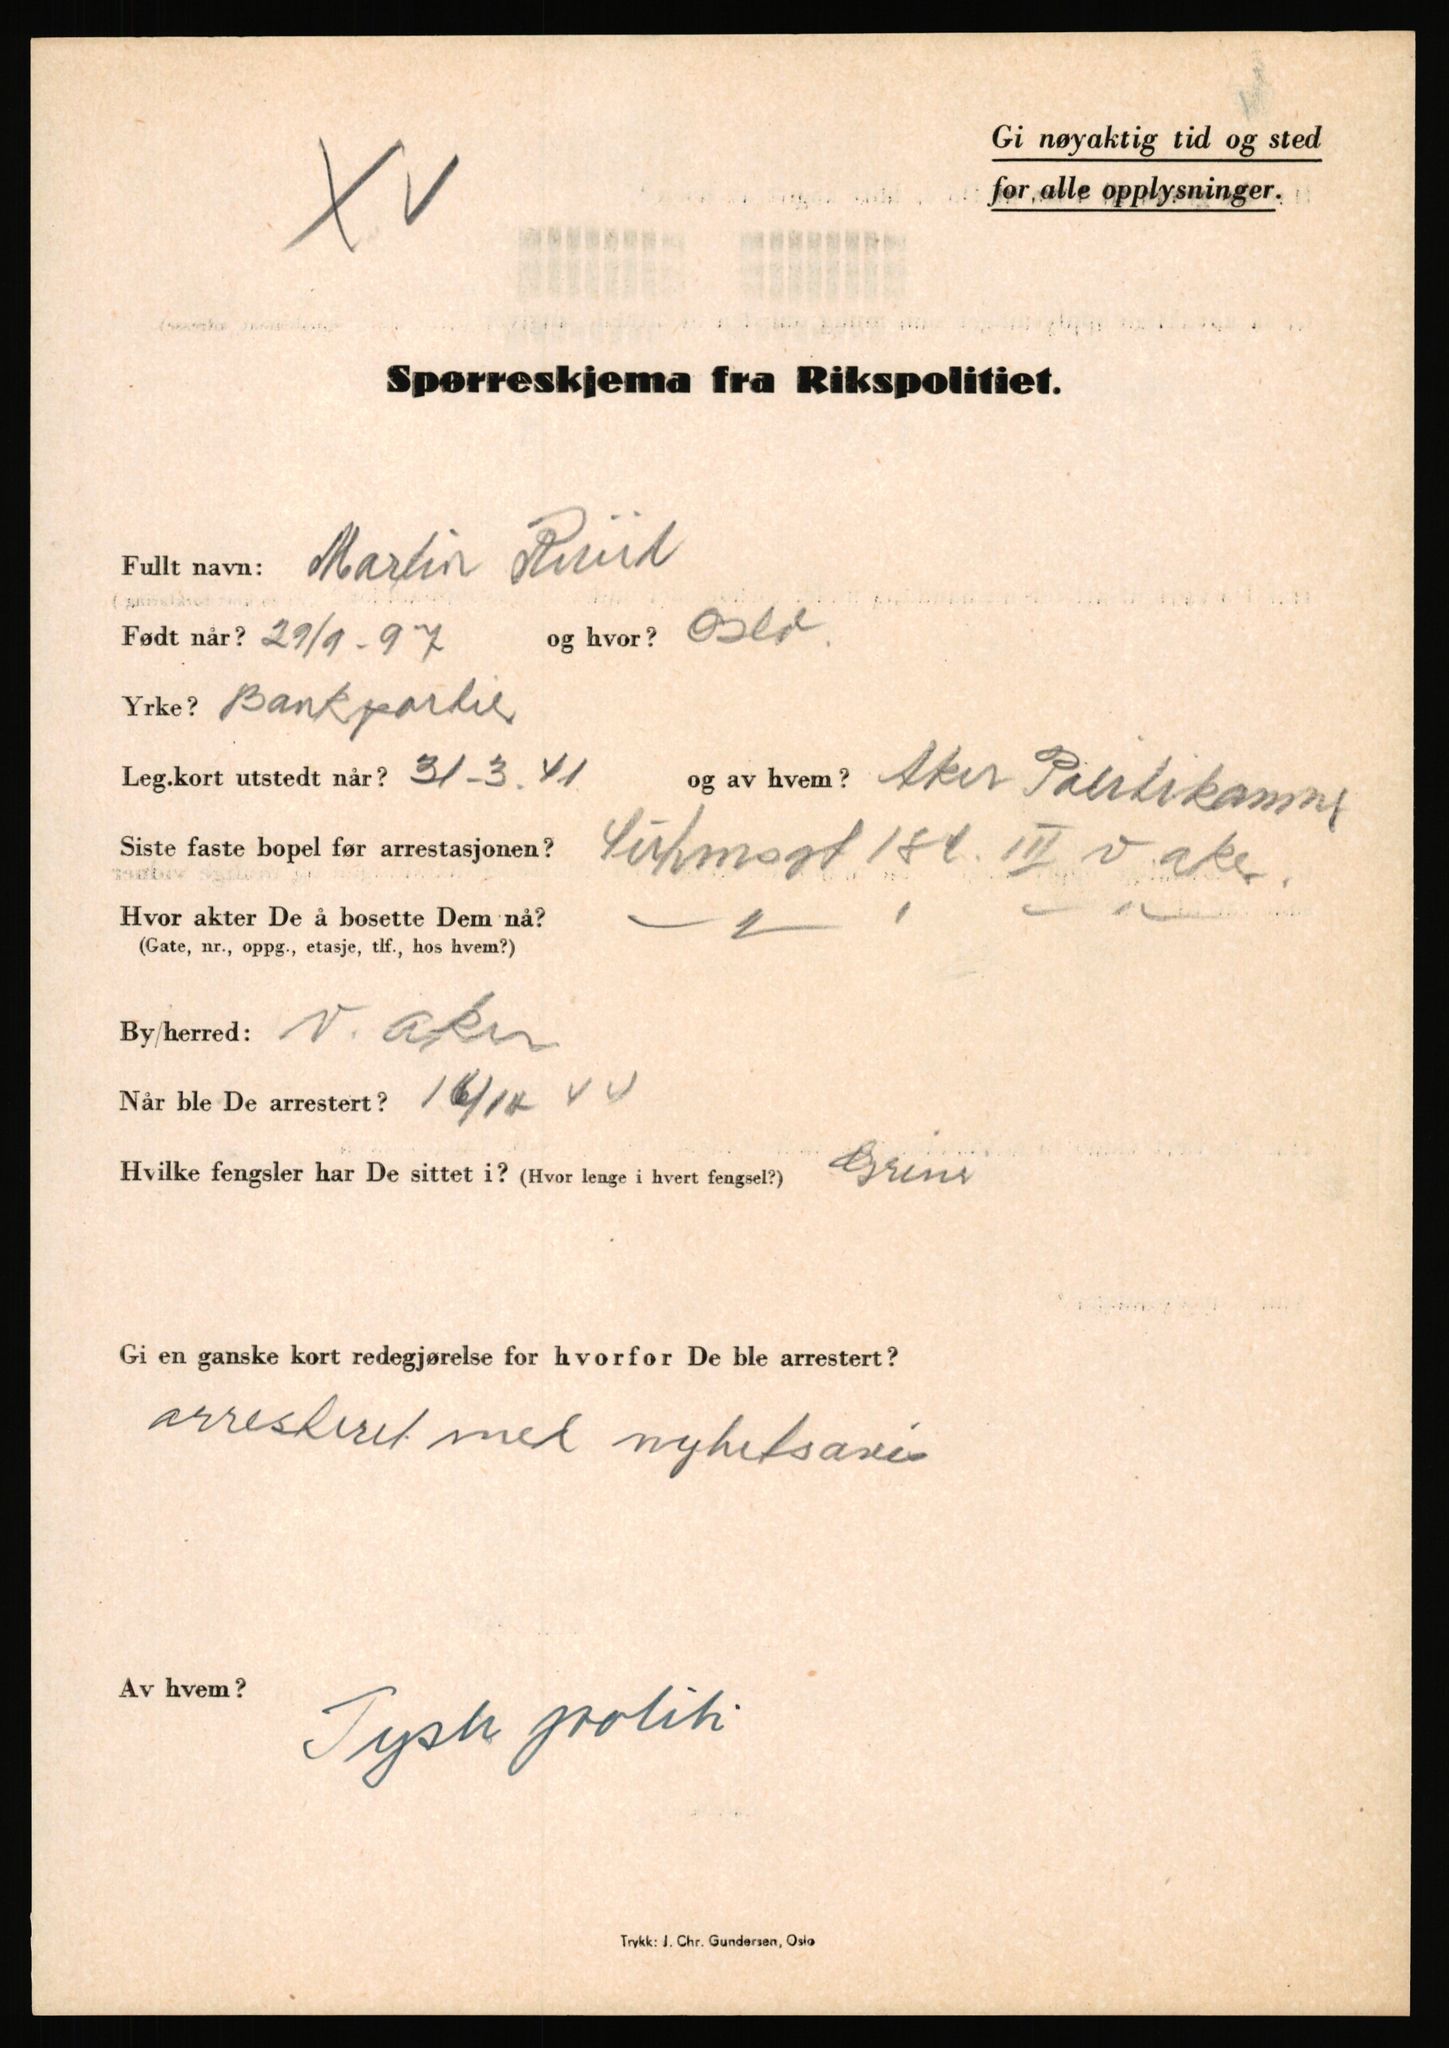 XV
Gi nøyaktig tid og sted
for alle opplysninger.
Spørreskjema fra Rikspolitiet.
Fullt navn: Martin Ruud
Født når? 29/9-97 og hvor? Oslo.
Yrke? Bankportier
Leg.kort utstedt når? 31-3.41 og av hvem? Aker Politikammer
Siste faste bopel før arrestasjonen? 18 III v. aker.
Hvor akter De å bosette Dem nå?
(Gate, nr., oppg., etasje, tlf., hos hvem?)
By/herred: v. aker
Når ble De arrestert? 44
Hvilke fengsler har De sittet i? (Hvor lenge i hvert fengsel?) Grini
Gi en ganske kort redegjørelse for hvorfor De ble arrestert?
arresteret med nyhetsavis
Av hvem? Tysk politi
Trykk: J. Chr. Gundersen, Oslo